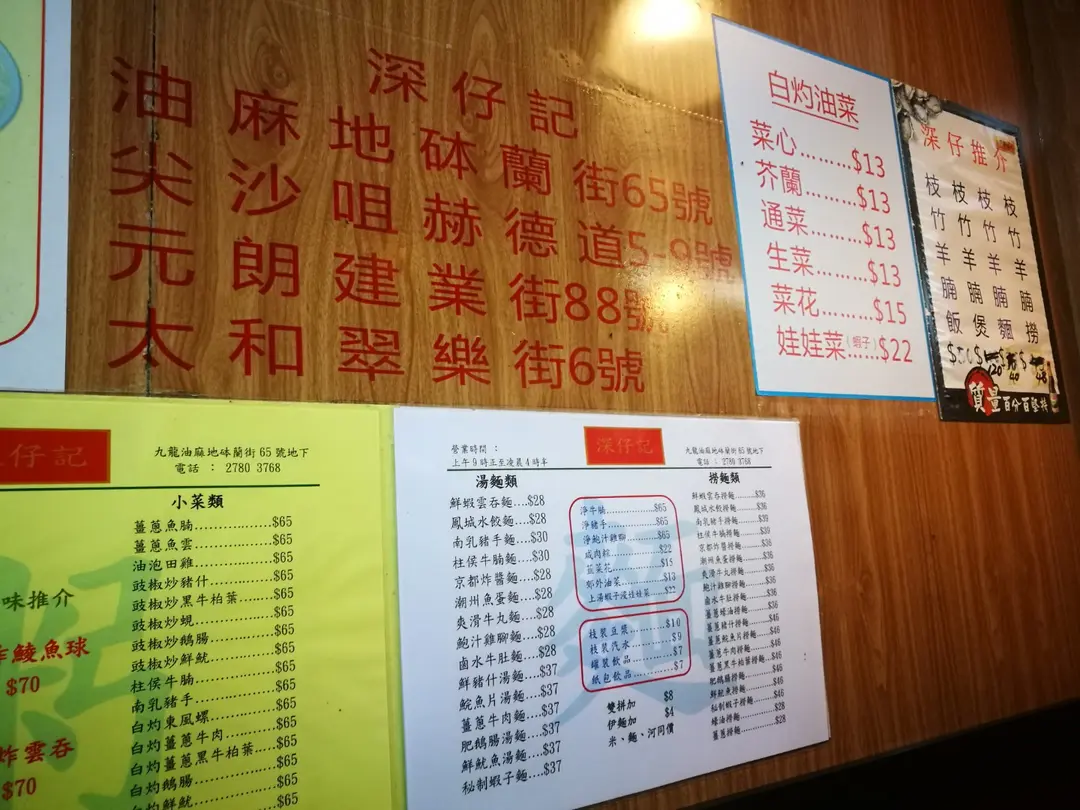 深仔記
油麻地砵蘭街65號
尖沙咀赫德道5-9號
元朗建業街88號
太和翠樂街6號
白灼油菜
菜心.........$13
芥蘭.........$13
通菜.........$13
生菜.........$13
菜花.........$15
娃娃菜(蝦子)......$22
深仔推介
枝枝枝枝
竹竹竹竹
羊羊羊羊
腩腩腩腩
飯煲麵撈
質量百分百堅持
仔記
九龍油麻地砵蘭街 65 號地下
電話 : 2780 3768
小菜類
薑蔥魚腩................$65
薑蔥魚雲................$65
油泡田雞................$65
豉椒炒豬什................$65
豉椒炒黑牛柏葉.......$65
豉椒炒蜆................$65
豉椒炒鵝腸................$65
豉椒炒鮮魷................$65
柱侯牛腩................$65
南乳豬手................$65
白灼東風螺................$65
白灼薑蔥牛肉............$65
白灼薑蔥黑牛柏葉....$65
白灼鵝腸................$65
白灼鮮魷................$65
味推介
炸鯪魚球
$70
炸雲吞
$70
營業時間 :
上午9時正至凌晨4時半
深仔記
九龍油麻地砵蘭街 65 號地下
電話 : 2780 3768
湯麵類
鮮蝦雲吞麵....$28
鳳城水餃麵....$28
南乳豬手麵....$30
柱侯牛腩麵....$30
京都炸醬麵....$28
潮州魚蛋麵....$28
爽滑牛丸麵....$28
鮑汁雞腳麵....$28
鹵水牛肚麵....$28
鮮豬什湯麵....$37
鯇魚片湯麵....$37
薑蔥牛肉麵....$37
肥鵝腸湯麵....$37
鮮魷魚湯麵....$37
秘制蝦子麵....$37
淨牛腩................$65
淨豬手................$65
淨鮑汁雞腳............$65
咸肉粽................$22
韮菜花................$15
郊外油菜..............$13
上湯蝦子浸娃娃菜....$22
枝裝豆漿..........$10
枝裝汽水..........$9
罐裝飲品..........$7
紙包飲品..........$7
雙拼加 $8
伊麵加 $4
米、麵、河同價
撈麵類
鮮蝦雲吞撈麵........$36
鳳城水餃撈麵........$36
南乳豬手撈麵........$39
柱侯牛腩撈麵........$39
京都炸醬撈麵........$36
潮州魚蛋撈麵........$36
爽滑牛丸撈麵........$36
鮑汁雞腳撈麵........$36
鹵水牛肚撈麵........$36
薑蔥蠔油撈麵........$36
薑蔥豬什撈麵........$46
薑蔥鯇魚片撈麵......$46
薑蔥牛肉撈麵........$46
薑蔥黑牛柏葉撈麵....$46
肥鵝腸撈麵..........$46
鮮魷魚撈麵..........$46
秘制蝦子撈麵........$46
蠔油撈麵............$28
薑蔥撈麵............$28